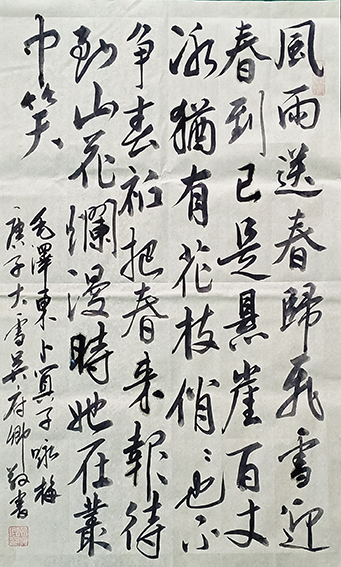 風雨送春歸飛雪迎
春到已是悬崖百丈
冰猶有花枝俏々也不
争春祇把春来報待
到山花爛漫時她在叢
中笑
毛澤東卜算子咏梅
庚子大雪吴府卿敬書